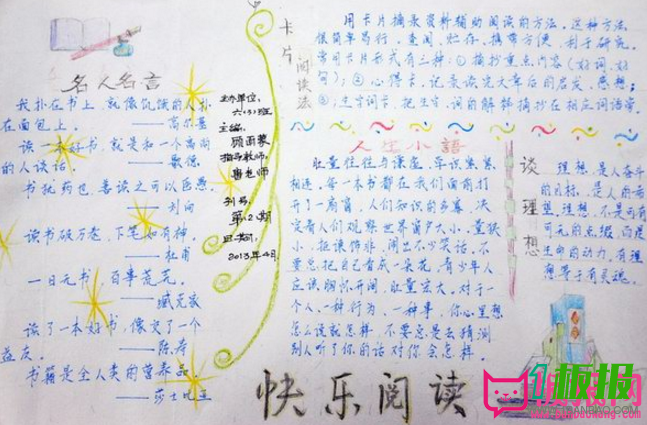 名人名言
我扑在书上，就像饥饿的人扑
在面包上。
——高尔基
读一本好书，就是和一个高尚
的人谈话。
——歌德
书犹药也，善读之可以医愚
——刘向
读书破万卷，下笔如有神。
——杜甫
一日无书，百事荒芜。
读了一本好书，像交了一个
益友。
书籍是全人类的营养品。
——莎士比亚
主办单位：
六（3）班
主编：
顾雨蒙
指导教师：
唐老师
刊号：
第12期
日期：
2013年4月
卡片
阅读法
用卡片摘录资料辅助阅读的方法。这种方法
很简单易行，查阅、贮存、携带方便，利于研究。
常用卡片形式有三种：①摘抄重点内容（好词、好
句）；②心得卡，记录读完文章后的启发、思想；
③生字词卡，把生字、词的解释摘抄在相应词语旁。
人生小語
肚量往往与谦虚、学识紧紧
相连。每一本书都在我们面前打
开了一扇窗，人们知识的多寡，决
定着人们观察世界窗户大小。量狭
小，拒谏饰非，闹出不少笑话。不
要总把自己看成一朵花，青少年人
应该胸怀开阔，肚量宏大。对于一
个人，一种行为，一种事，你心里想
怎么说就怎样，不要总是去猜测
别人听了你的话对你会怎样。
谈理想
理想，是人奋斗
的目标，是人的希
望。理想，不是可有
可无的点缀，而是
生命的动力，有理
想等于有灵魂。
快乐阅读
板报